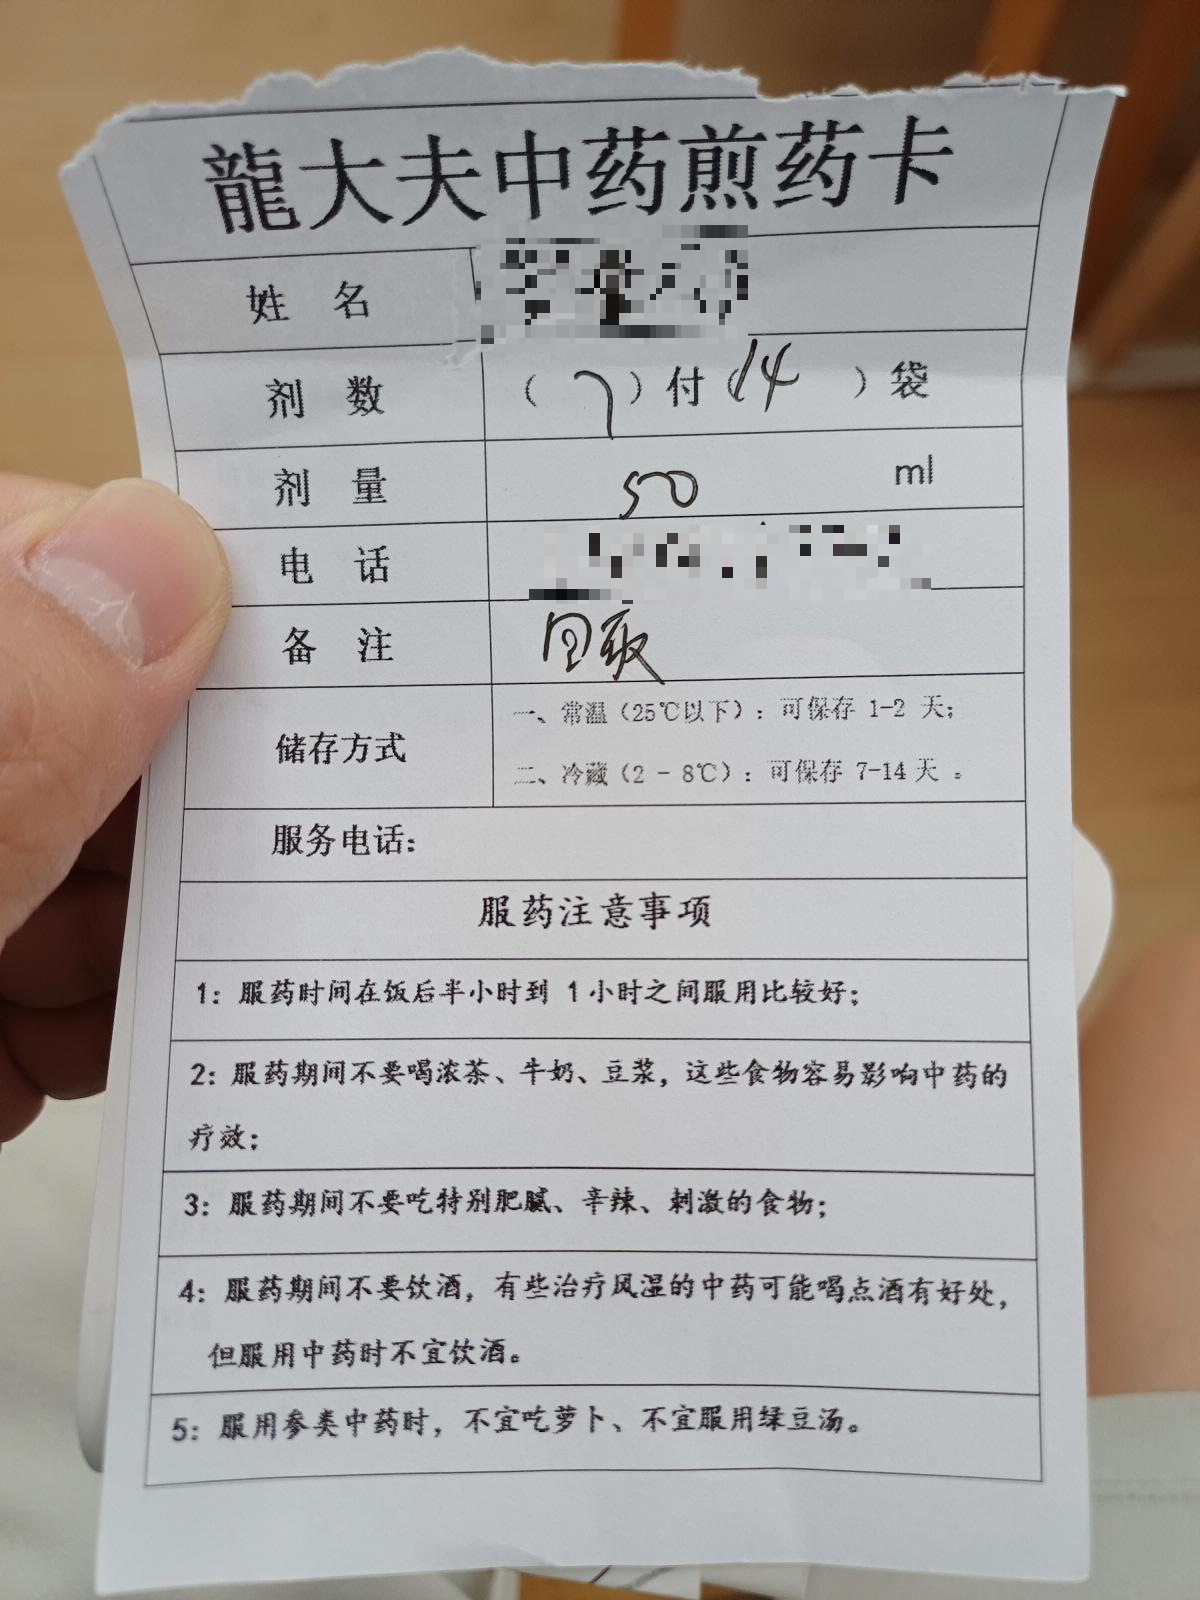 龍大夫中药煎药卡
姓 名
剂 数 （ 7 ）付（14 ）袋
剂 量 50 ml
电 话
备 注 自取
储存方式
一、常温（25℃以下）：可保存 1-2 天；
二、冷藏（2 - 8℃）：可保存 7-14 天 。
服务电话：
服药注意事项
1：服药时间在饭后半小时到 1 小时之间服用比较好；
2：服药期间不要喝浓茶、牛奶、豆浆，这些食物容易影响中药的
疗效；
3：服药期间不要吃特别肥腻、辛辣、刺激的食物；
4：服药期间不要饮酒，有些治疗风湿的中药可能喝点酒有好处，
但服用中药时不宜饮酒。
5：服用参类中药时，不宜吃萝卜、不宜服用绿豆汤。